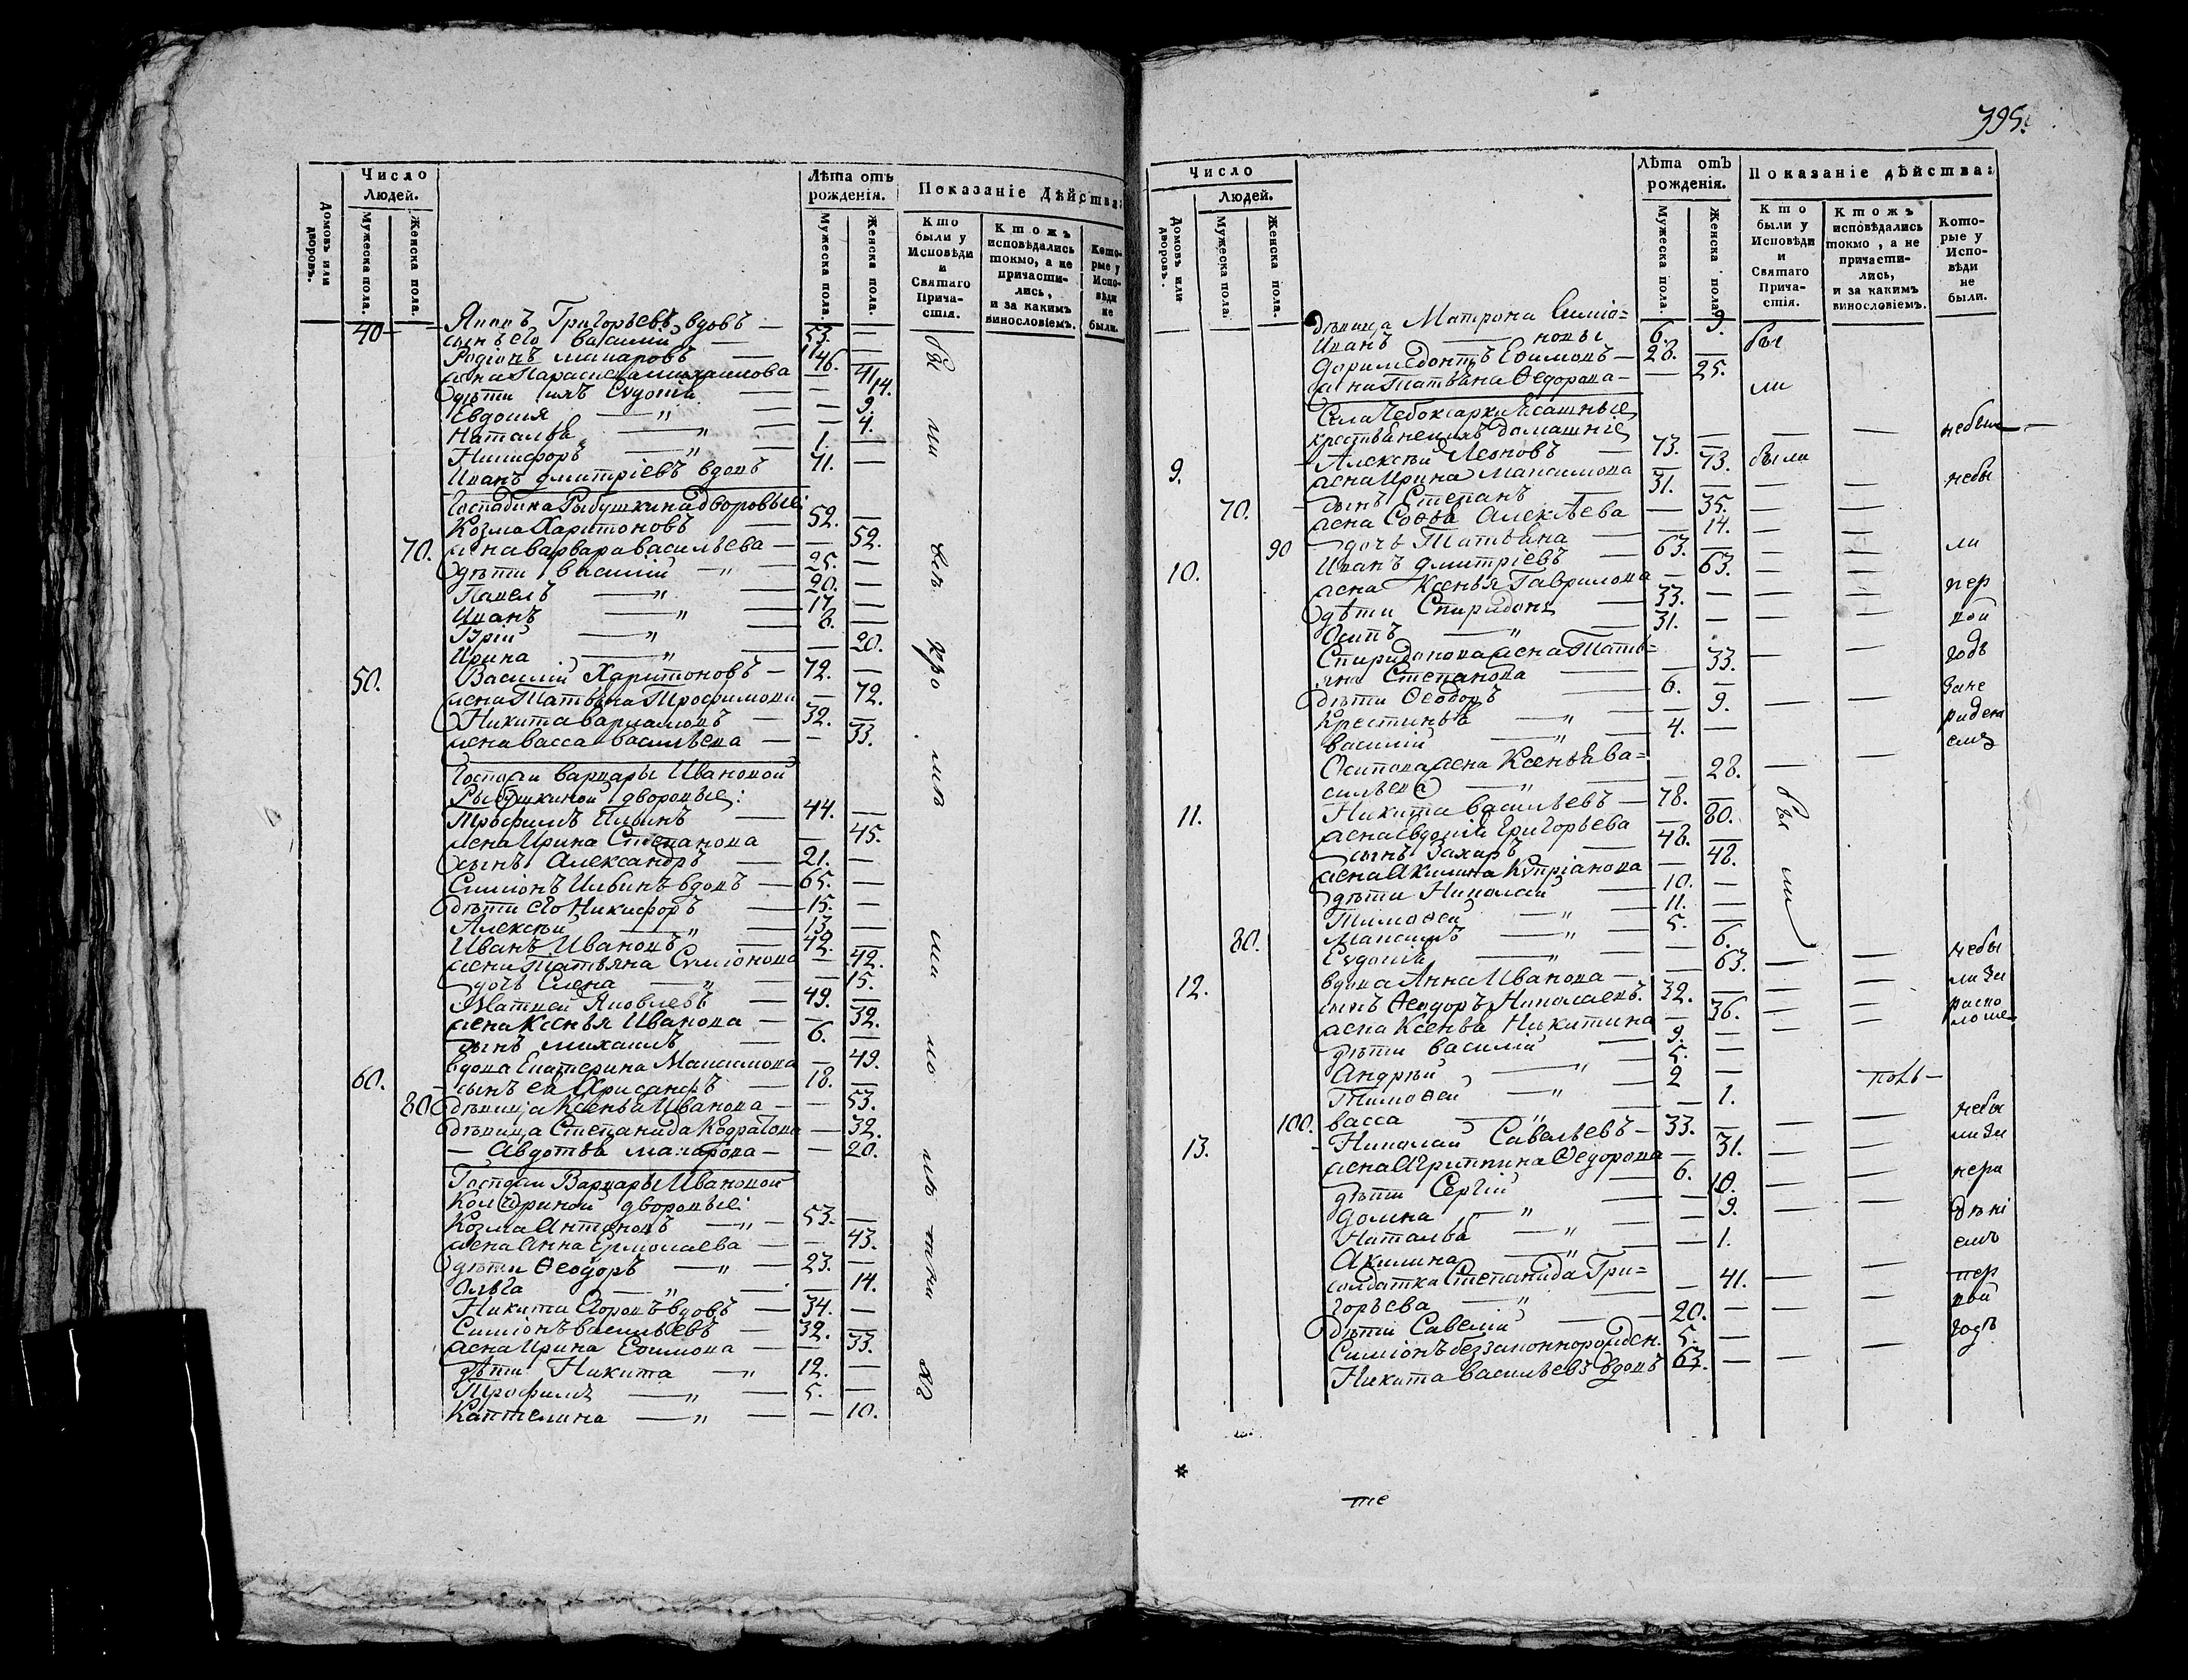 Число
Людей.
Лѣта отъ
рожденія.
Показаніе Дѣйства:
Домовъ или дворовъ.
Мужеска пола.
Женска пола.
Мужеска пола.
Женска пола.
Кто были у Исповѣди и Святаго Прича-стія.
Ктожъ исповѣдались токмо, а не причасти-лись, и за какимъ винословіемъ.
Кото-рые у Испо-вѣди не были.
Григорьевъ вдовъ — 53. —
40 сынъ его Василий — 11. —
Родіонъ Макаровъ — 46. —
жена Параскева Михайлова — 41.
дѣти ихъ Евдокія — 14.
Евдокия — „ — — 9.
Наталья — „ — — 4.
Никифоръ — „ — 1. —
Иванъ Дмитріевъ вдовъ 71. —
Господина Рыбушкина дворовые:
Козма Харитоновъ — 52. —
70. жена Варвара Васильева — — 52.
дѣти Василий — „ — 25. —
Павелъ — „ — 20. —
Иванъ — „ — 17. —
— „ — 8. —
Ирина — „ — — 20.
50. Василий Харитоновъ — 72. —
жена Татьяна Трофимова — 72.
Никита Варламовъ — 32. —
жена Васса Васильева — — 33.
Госпожи Варвары Ивановой
Рыбушкиной дворовые:
Трофимъ Ильинъ — 44. —
жена Ирина Степанова — 45.
сынъ Александръ — 21. —
Симіонъ Ильинъ вдовъ — 65. —
дѣти его Никифоръ — 15. —
Алексѣй — „ — 13. —
Иванъ Ивановъ — 42. —
жена Татьяна Симіонова — 42.
дочь Елена — „ — — 15.
Матвей Яковлевъ — 49. —
жена Ксенья Иванова — — 32.
сынъ Михаилъ — 6. —
вдова Екатерина Максимова — 49.
60. сынъ ея Хрисанфъ — 18. —
80 дѣвица Ксенья Иванова — — 53.
дѣвица Степанида — 32.
— Авдотья Макарова — — 20.
Госпожи Варвары Ивановой
дворовые:
Козма Антоновъ — „ — 53. —
жена Анна Ермолаева — — 43.
дѣти Ѳеодоръ — „ — 23. —
Ольга — „ — — 14.
Никита Егоровъ вдовъ — 34. —
Симіонъ Васильевъ — 32. —
жена Ирина Ефимова — — 33.
дѣти Никита — „ 12. —
Трофимъ — „ — 5. —
Каптелина — „ — — 10.
395.
Число
Людей.
Лѣта отъ
рожденія.
Показаніе дѣйства:
Домовъ или дворовъ.
Мужеска пола.
Женска пола.
Мужеска пола.
Женска пола.
Кто были у Исповѣди и Святаго Прича-стія.
Ктожъ исповѣдались токмо, а не причасти-лись, и за какимъ винословіемъ.
Кото-рые у Испо-вѣди не были.
дѣвица Матрона Симіо=
новы 9.
Иванъ — 6. — бы
Доримедонтъ Ефимовъ — 28. —
жена Татьяна Ѳедорова — — 25. ли
Села Чебоксарки Ясашные
крестьяне и ихъ домашніе небыли
9. Алексѣй Леоновъ — 73. — были
жена Ирина Максимова — 73.
сынъ Степанъ — 31. — небы
70. жена Софья Алексѣева — 35.
90 дочь Татьяна — — 14. ли
10. Иванъ Дмитріевъ — 63. —
жена Ксенья Гаврилова — 63. пер
дѣти Спиридонъ — 33. — вой
Осипъ — „ — 31. —
Спиридонова жена Татья- годъ
яна Степанова — 33.
дѣти Ѳеодоръ — 6. —
Крестинья — „ — — 9.
Василий — „ — 4. —
Осипова жена Ксенья Ва=
сильева — „ — 28.
11. Никита Васильевъ — 78. — бы
жена Евдокія Григорьева — 80.
сынъ Захаръ — 48. — ли
жена Акилина Купріанова — 48.
дѣти Николай — 10. —
Тимоѳей — „ — 11. —
80. Максимъ — „ — 5. —
Евдокия — „ — — 6.
12. вдова Анна Иванова — — 63. небы
сынъ Ѳеодоръ Николаевъ. 32. — ли за
жена Ксенья Никитина — 36. распо
дѣти Василий — 9. —
Андрѣй — „ — 5. —
Тимоѳей — „ — 2 —
100. Васса — „ — — 1.
13. Николай Савельевъ — 33. — небы
жена Агриппина Ѳедорова — 31. ли за
дѣти Сергій — 6. — нера
Домна — „ — — 10.
Наталья — „ — — 9.
Акилина — „ — — 1.
солдатка Степанида Гри=
горьева — „ — — 41. пер
дѣти Савелий — 20. — вой
Симіонъ беззаконнорожден. 5. — годъ
Никита Васильевъ вдовъ 63. —
те